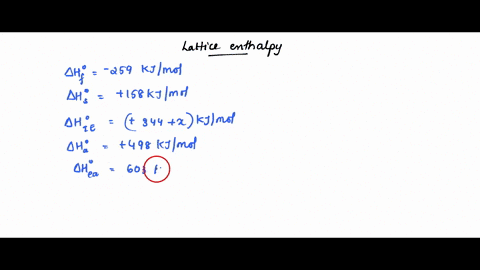 Lattice enthalpy
ΔH°f = -259 KJ/mol
ΔH°s = +158 KJ/mol
ΔH°IE = (+ 344 + x) KJ/mol
ΔH°a = +498 KJ/mol
ΔH°ea = 603